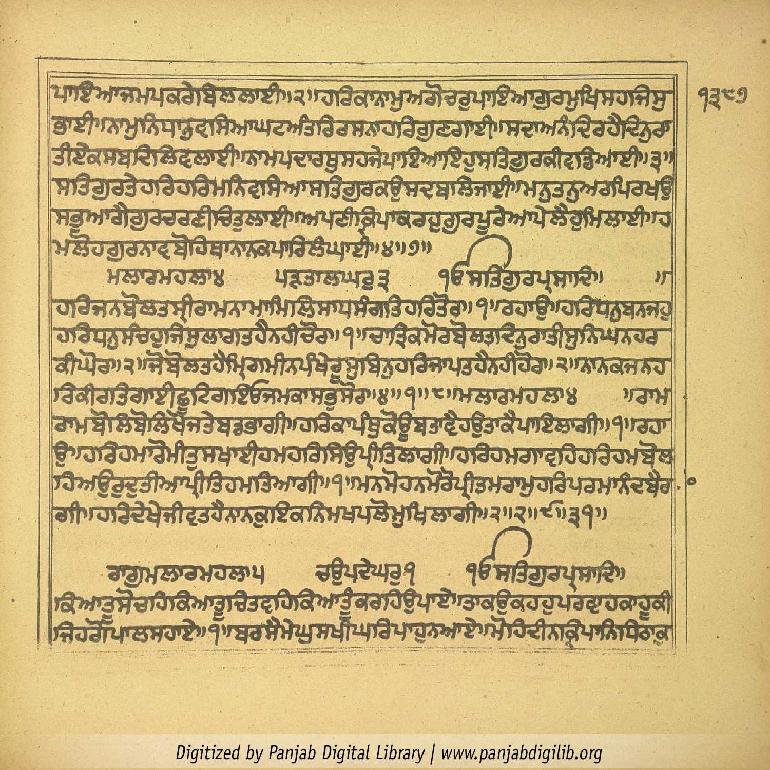 ੧੩੮੭
ਪਾਇਆਜਮਪਕਰੇਬਿਲਲਾਈ॥੨॥ਹਰਿਕਾਨਾਮੁਅਗੋਚਰੁਪਾਇਆਗੁਰਮੁਖਿਸਹਜਿਸੁ
ਭਾਈ॥ਨਾਮੁਨਿਧਾਨੁਵਸਿਆਘਟਅੰਤਰਿਰਸਨਾਹਰਿਗੁਣਗਾਈ॥ਸਦਾਅਨੰਦਿਰਹੈਦਿਨੁਰਾ
ਤੀਏਕਸਬਦਿਲਿਵਲਾਈ॥ਨਾਮੁਪਦਾਰਥੁਸਹਜੇਪਾਇਆਇਹੁਸਤਿਗੁਰਕੀਵਡਿਆਈ॥੩॥
ਸਤਿਗੁਰਤੇਹਰਿਹਰਿਮਨਿਵਸਿਆਸਤਿਗੁਰਕਉਸਦਬਲਿਜਾਈ॥ਮਨੁਤਨੁਅਰਪਿਰਖਉ
ਸਭੁਆਗੈਗੁਰਚਰਣੀਚਿਤੁਲਾਈ॥ਅਪਣੀਕ੍ਰਿਪਾਕਰਹੁਗੁਰਪੂਰੇਆਪੇਲੈਹੁਮਿਲਾਈ॥ਹ
ਮਲੋਹਗੁਰਨਾਵਬੋਹਿਥਾਨਾਨਕਪਾਰਿਲੰਘਾਈ॥੪॥੭॥
ਮਲਾਰਮਹਲਾ੪ ਪੜਤਾਲਘਰੁ੩ ੴਸਤਿਗੁਰਪ੍ਰਸਾਦਿ॥ ॥
ਹਰਿਜਨਬੋਲਤਸ੍ਰੀਰਾਮਨਾਮਾਮਿਲਿਸਾਧਸੰਗਤਿਹਰਿਤੋਰ॥੧॥ਰਹਾਉ॥ਹਰਿਧਨੁਬਨਜਹੁ
ਹਰਿਧਨੁਸੰਚਹੁਜਿਸੁਲਾਗਤਹੈਨਹੀਚੋਰ॥੧॥ਚਾਤ੍ਰਿਕਮੋਰਬੋਲਤਦਿਨੁਰਾਤੀਸੁਨਿਘਨਹਰ
ਕੀਘੋਰ॥੨॥ਜੋਬੋਲਤਹੈਮ੍ਰਿਗਮੀਨਪੰਖੇਰੂਸੁਬਿਨੁਹਰਿਜਾਪਤਹੈਨਹੀਹੋਰ॥੨॥ਨਾਨਕਜਨਹ
ਰਿਕੀਰਤਿਗਾਈਛੂਟਿਗਇਓਜਮਕਾਸਭਸੋਰ॥੪॥੧॥੮॥ਮਲਾਰਮਹਲਾ੪ ॥ਰਾਮ
ਰਾਮਬੋਲਿਬੋਲਿਖੋਜਤੇਬਡਭਾਗੀ॥ਹਰਿਕਾਪੰਥੁਕੋਊਬਤਾਵੈਹਉਤਾਕੈਪਾਇਲਾਗੀ॥੧॥ਰਹਾ
ਉ॥ਹਰਿਹਮਾਰੋਮੀਤੁਸਖਾਈਹਮਹਰਿਸਿਉਪ੍ਰੀਤਿਲਾਗੀ॥ਹਰਿਹਮਗਾਵਹਿਹਰਿਹਮਬੋਲ
ਹਿਅਉਰੁਦੁਤੀਆਪ੍ਰੀਤਿਹਮਤਿਆਗੀ॥੧॥ਮਨਮੋਹਨਮੋਰੋਪ੍ਰੀਤਮਰਾਮੁਹਰਿਪਰਮਾਨੰਦਬੈਰਾ
ਗੀ॥ਹਰਿਦੇਖੇਜੀਵਤਹੈਨਾਨਕੁਇਕਨਿਮਖਪਲੋਮੁਖਿਲਾਗੀ॥੨॥੨॥੯॥੩੧॥
ਰਾਗੁਮਲਾਰਮਹਲਾ੫ ਚਉਪਦੇਘਰੁ੧ ੴਸਤਿਗੁਰਪ੍ਰਸਾਦਿ॥
ਕਿਆਤੂਸੋਚਹਿਕਿਆਤੂਚਿਤਵਹਿਕਿਆਤੂੰਕਰਹਿਉਪਾਏ॥ਤਾਕਉਕਹਹੁਪਰਵਾਹਕਾਹੂਕੀ
ਜਿਹਗੋਪਾਲਸਹਾਏ॥੧॥ਬਰਸੈਮੇਘੁਸਖੀਘਰਿਪਾਹੁਨਆਏ॥ਮੋਹਿਦੀਨਕ੍ਰਿਪਾਨਿਧਿਠਾਕੁ
Digitized by Panjab Digital Library | www.panjabdigilib.org